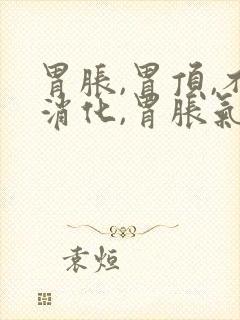 胃脹,胃頂,不
消化,胃脹氣
袁烜